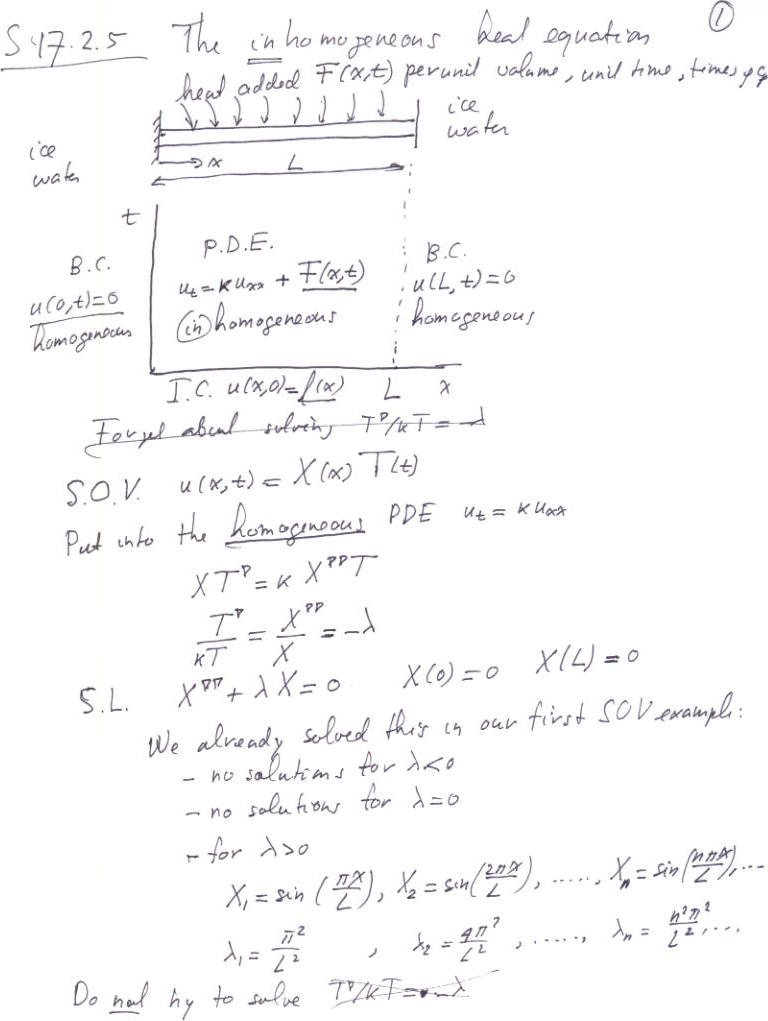 ①
S 47.2.5 The inhomogeneous heat equation
heat added F(x,t) per unit volume, unit time, times
ice water
ice water
→ x L
t
B.C.
u(0,t)=0
homogeneous
P.D.E.
u_t = κ u_xx + F(x,t)
(in)homogeneous
B.C.
u(L,t)=0
homogeneous
I.C. u(x,0)=f(x) L x
Forget about solving T'/κT = -λ
S.O.V. u(x,t) = X(x) T(t)
Put into the homogeneous PDE u_t = κ u_xx
XT' = κ X''T
T'/κT = X''/X = -λ
S.L. X'' + λX = 0 X(0)=0 X(L)=0
We already solved this in our first SOV example:
- no solutions for λ<0
- no solutions for λ=0
- for λ>0
X₁ = sin(πx/L), X₂ = sin(2πx/L), ....., Xₙ = sin(nπx/L), ...
λ₁ = π²/L² , λ₂ = 4π²/L² , ......, λₙ = n²π²/L², ...
Do not try to solve T'/κT = -λ